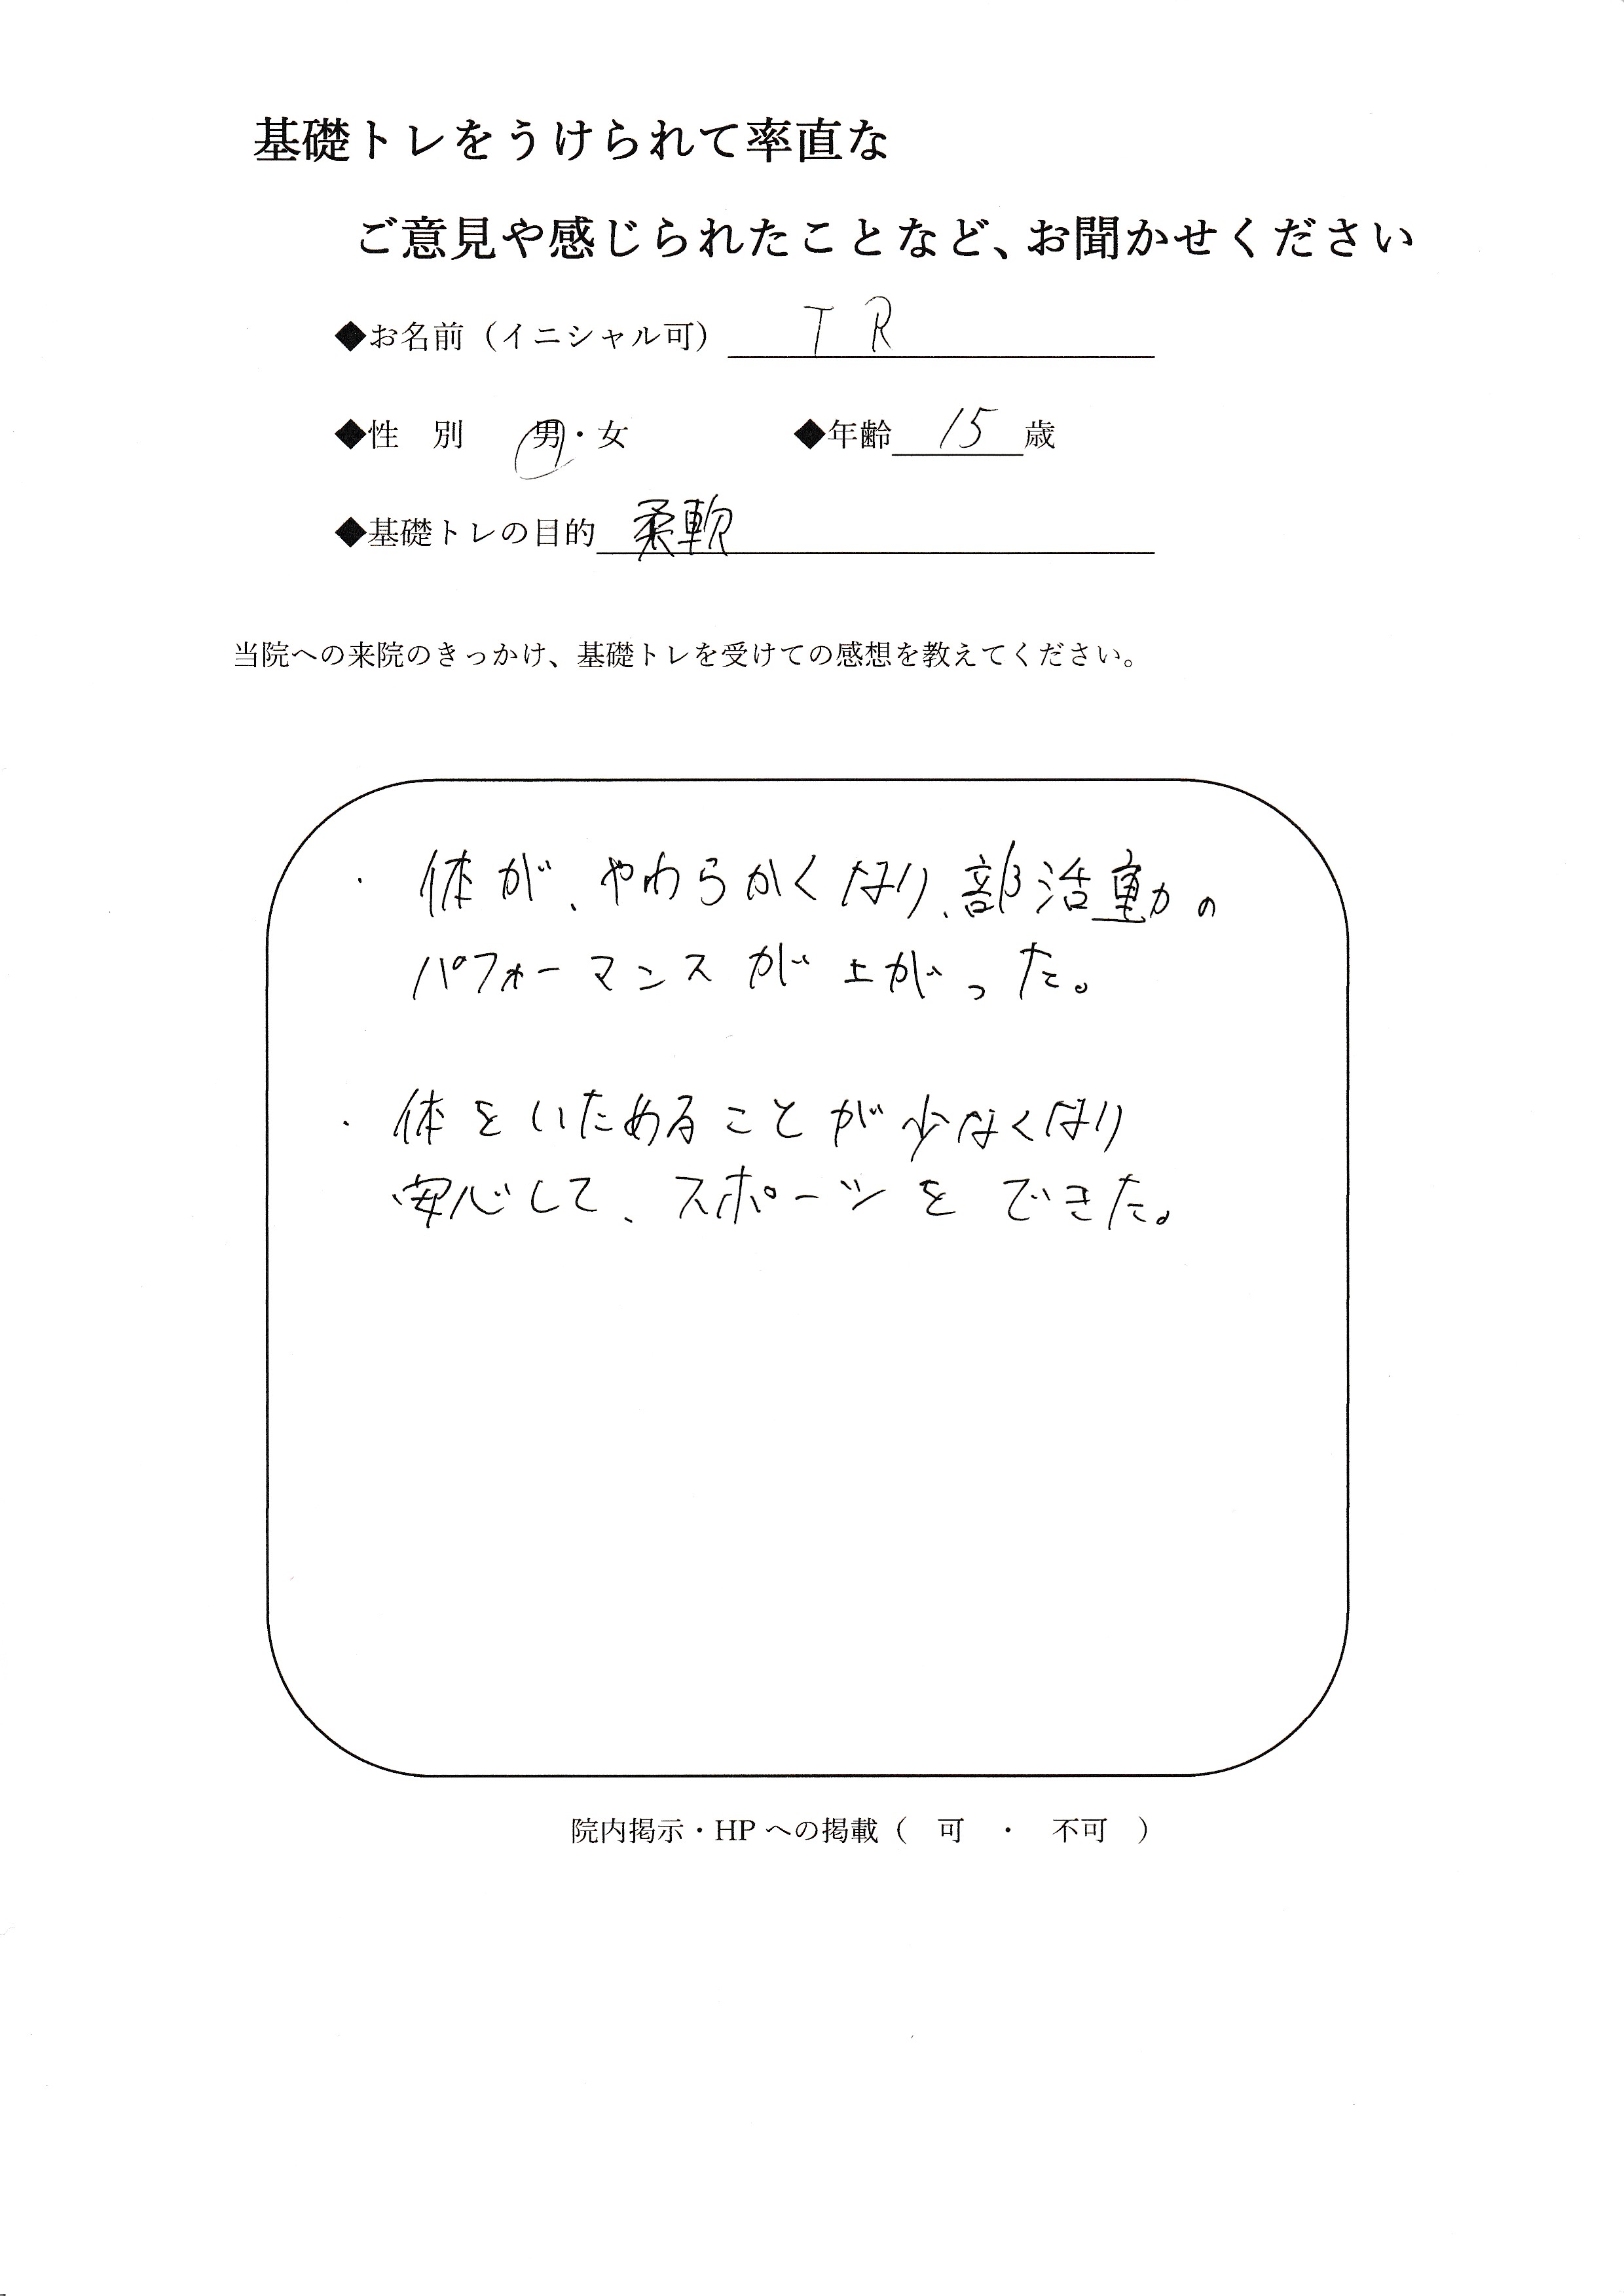 基礎トレをうけられて率直な
ご意見や感じられたことなど、お聞かせください
◆お名前（イニシャル可） T R
◆性　別　男・女　◆年齢 15 歳
◆基礎トレの目的 柔軟
当院への来院のきっかけ、基礎トレを受けての感想を教えてください。
・ 体が、やわらかくなり、部活動の
パフォーマンスが上がった。
・ 体をいためることが少なくなり
安心して、スポーツをできた。
院内掲示・HPへの掲載（　可　・　不可　）